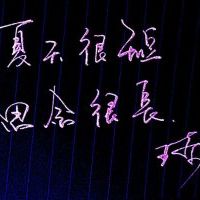 夏天很短
思念很長.